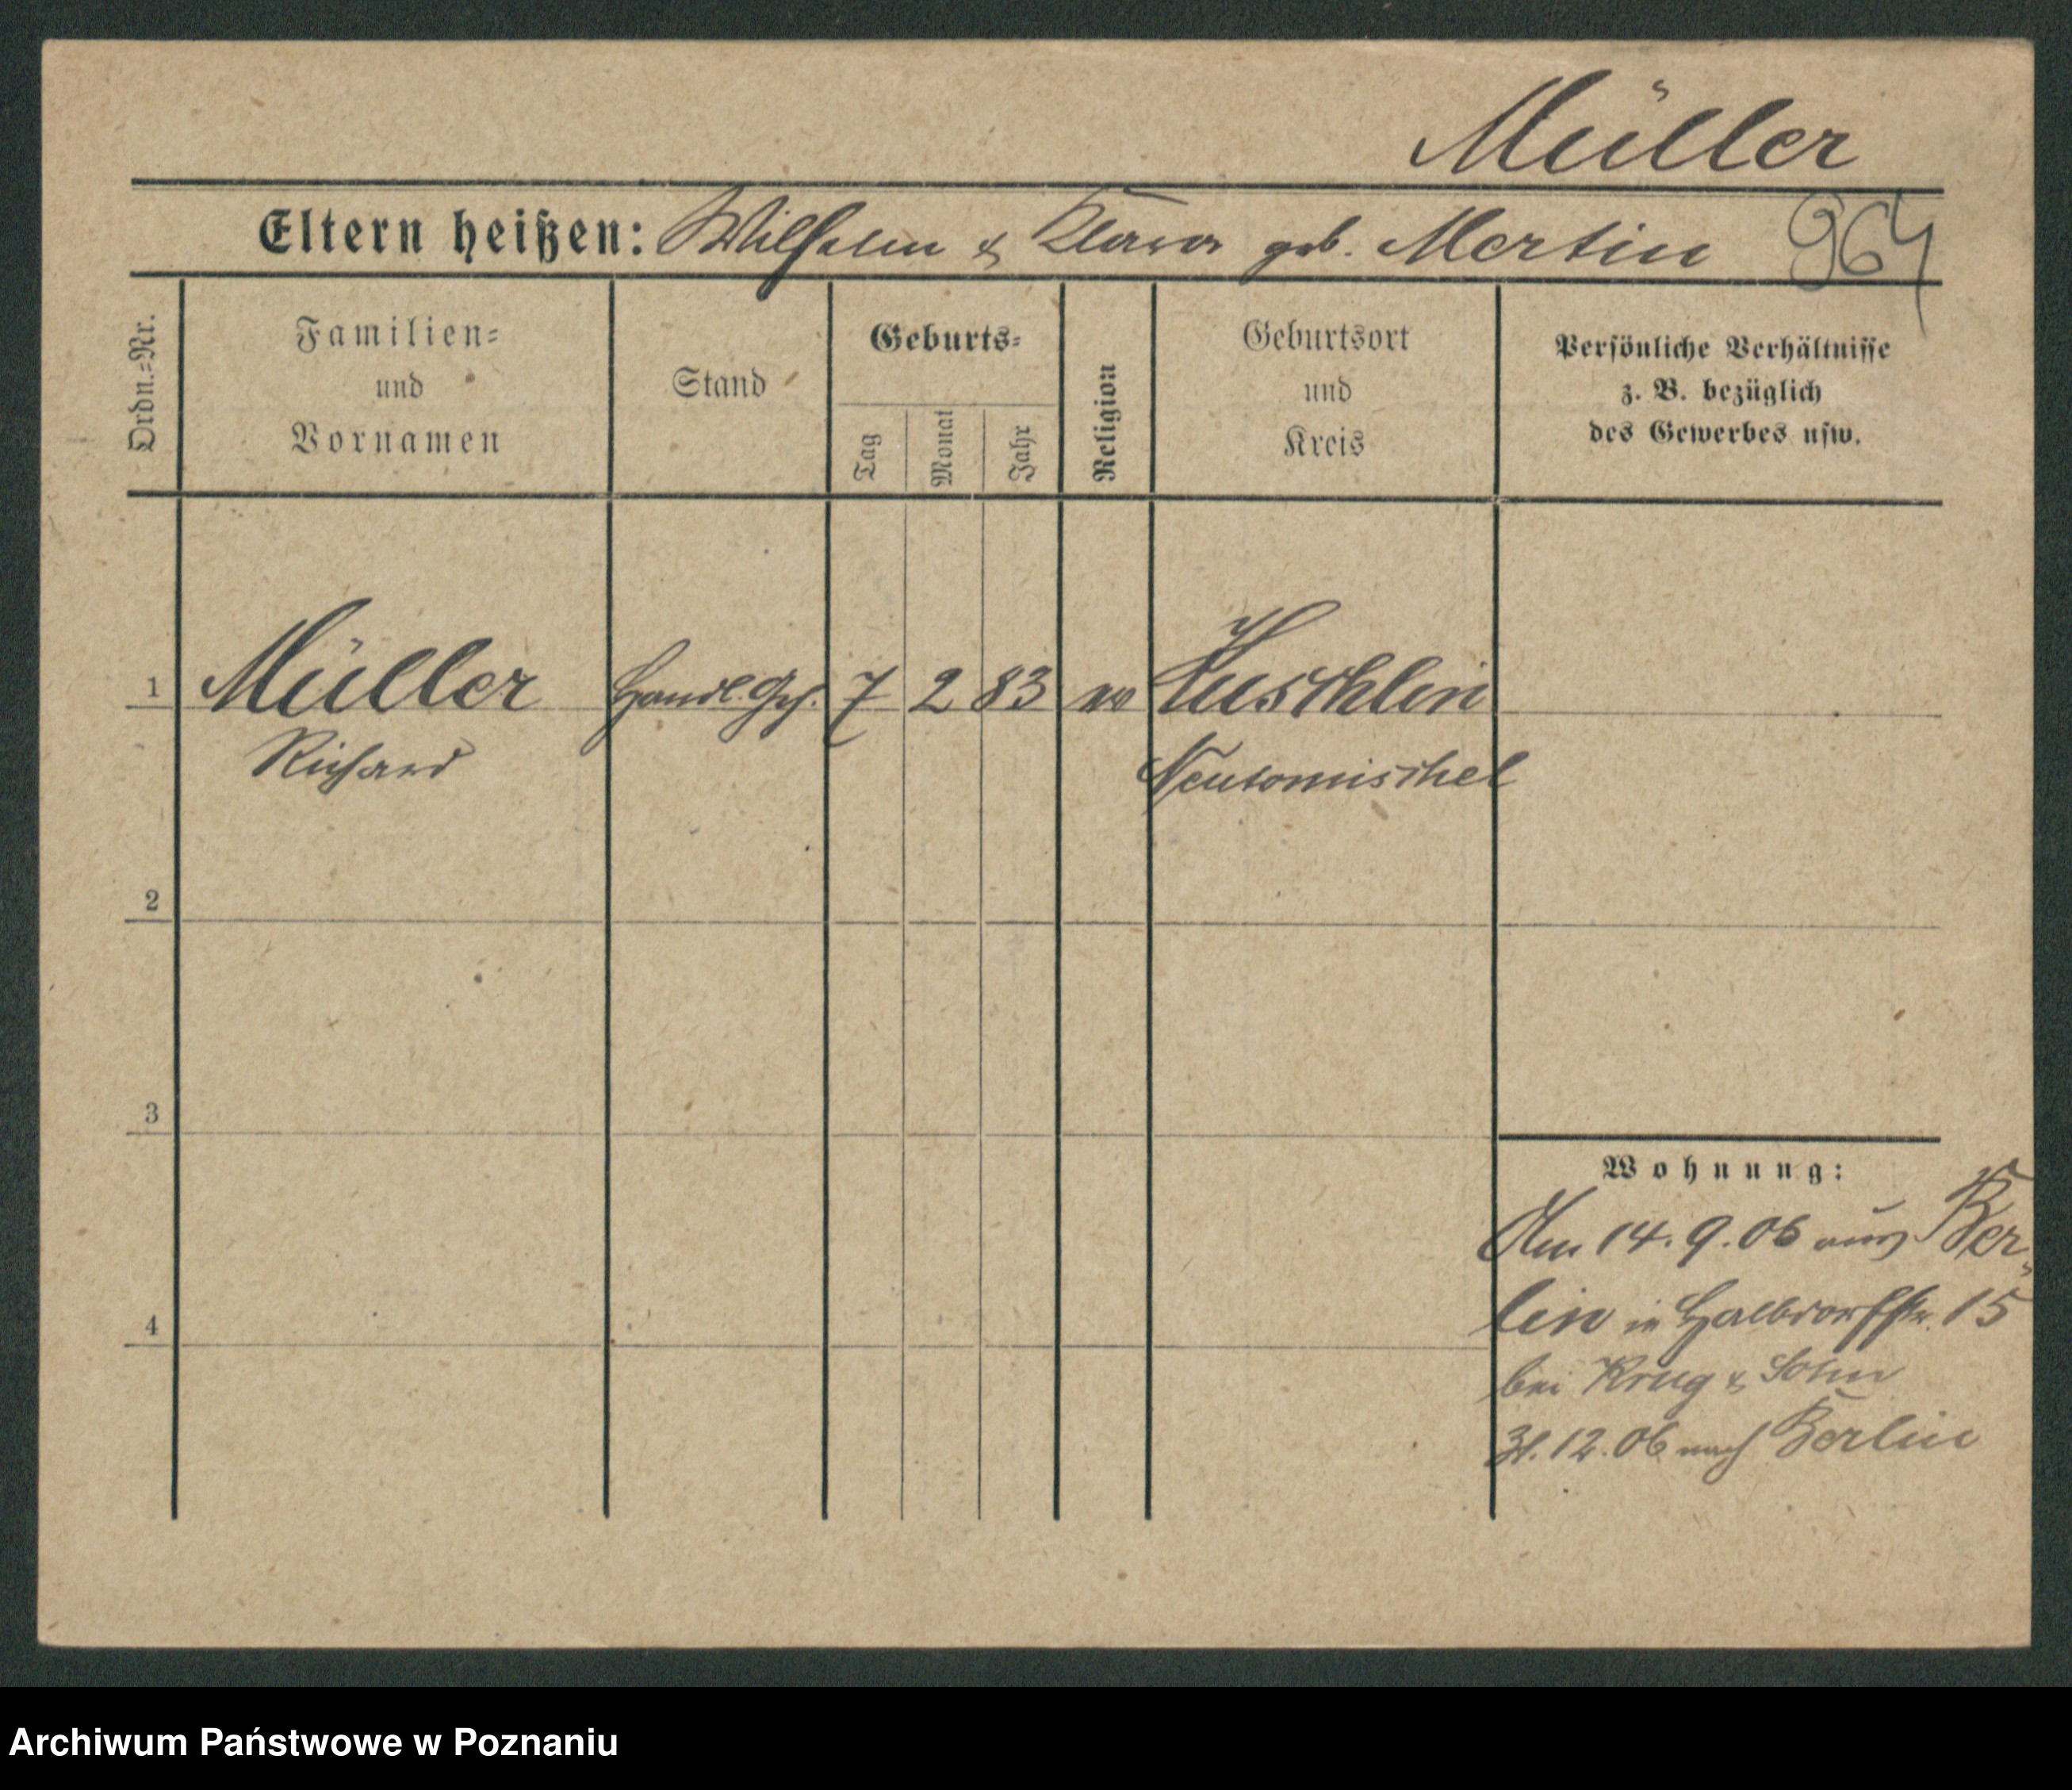 Müller
Eltern heißen: Wilhelm & Klara geb. Mertin 964
Ordn.-Nr.
Familien-
und
Vornamen
Stand
Geburts-
Tag
Monat
Jahr
Religion
Geburtsort
und
Kreis
Persönliche Verhältnisse
z. B. bezüglich
des Gewerbes usw.
1 Müller Handl. Geh. 7 2 83 Kuschlin
Richard Neutomischel
2
3
4
Wohnung:
Am 14.9.06 aus Ber-
lin in Halbdorfstr. 15
bei Krug & Sohn
31.12.06 nach Berlin
Archiwum Państwowe w Poznaniu